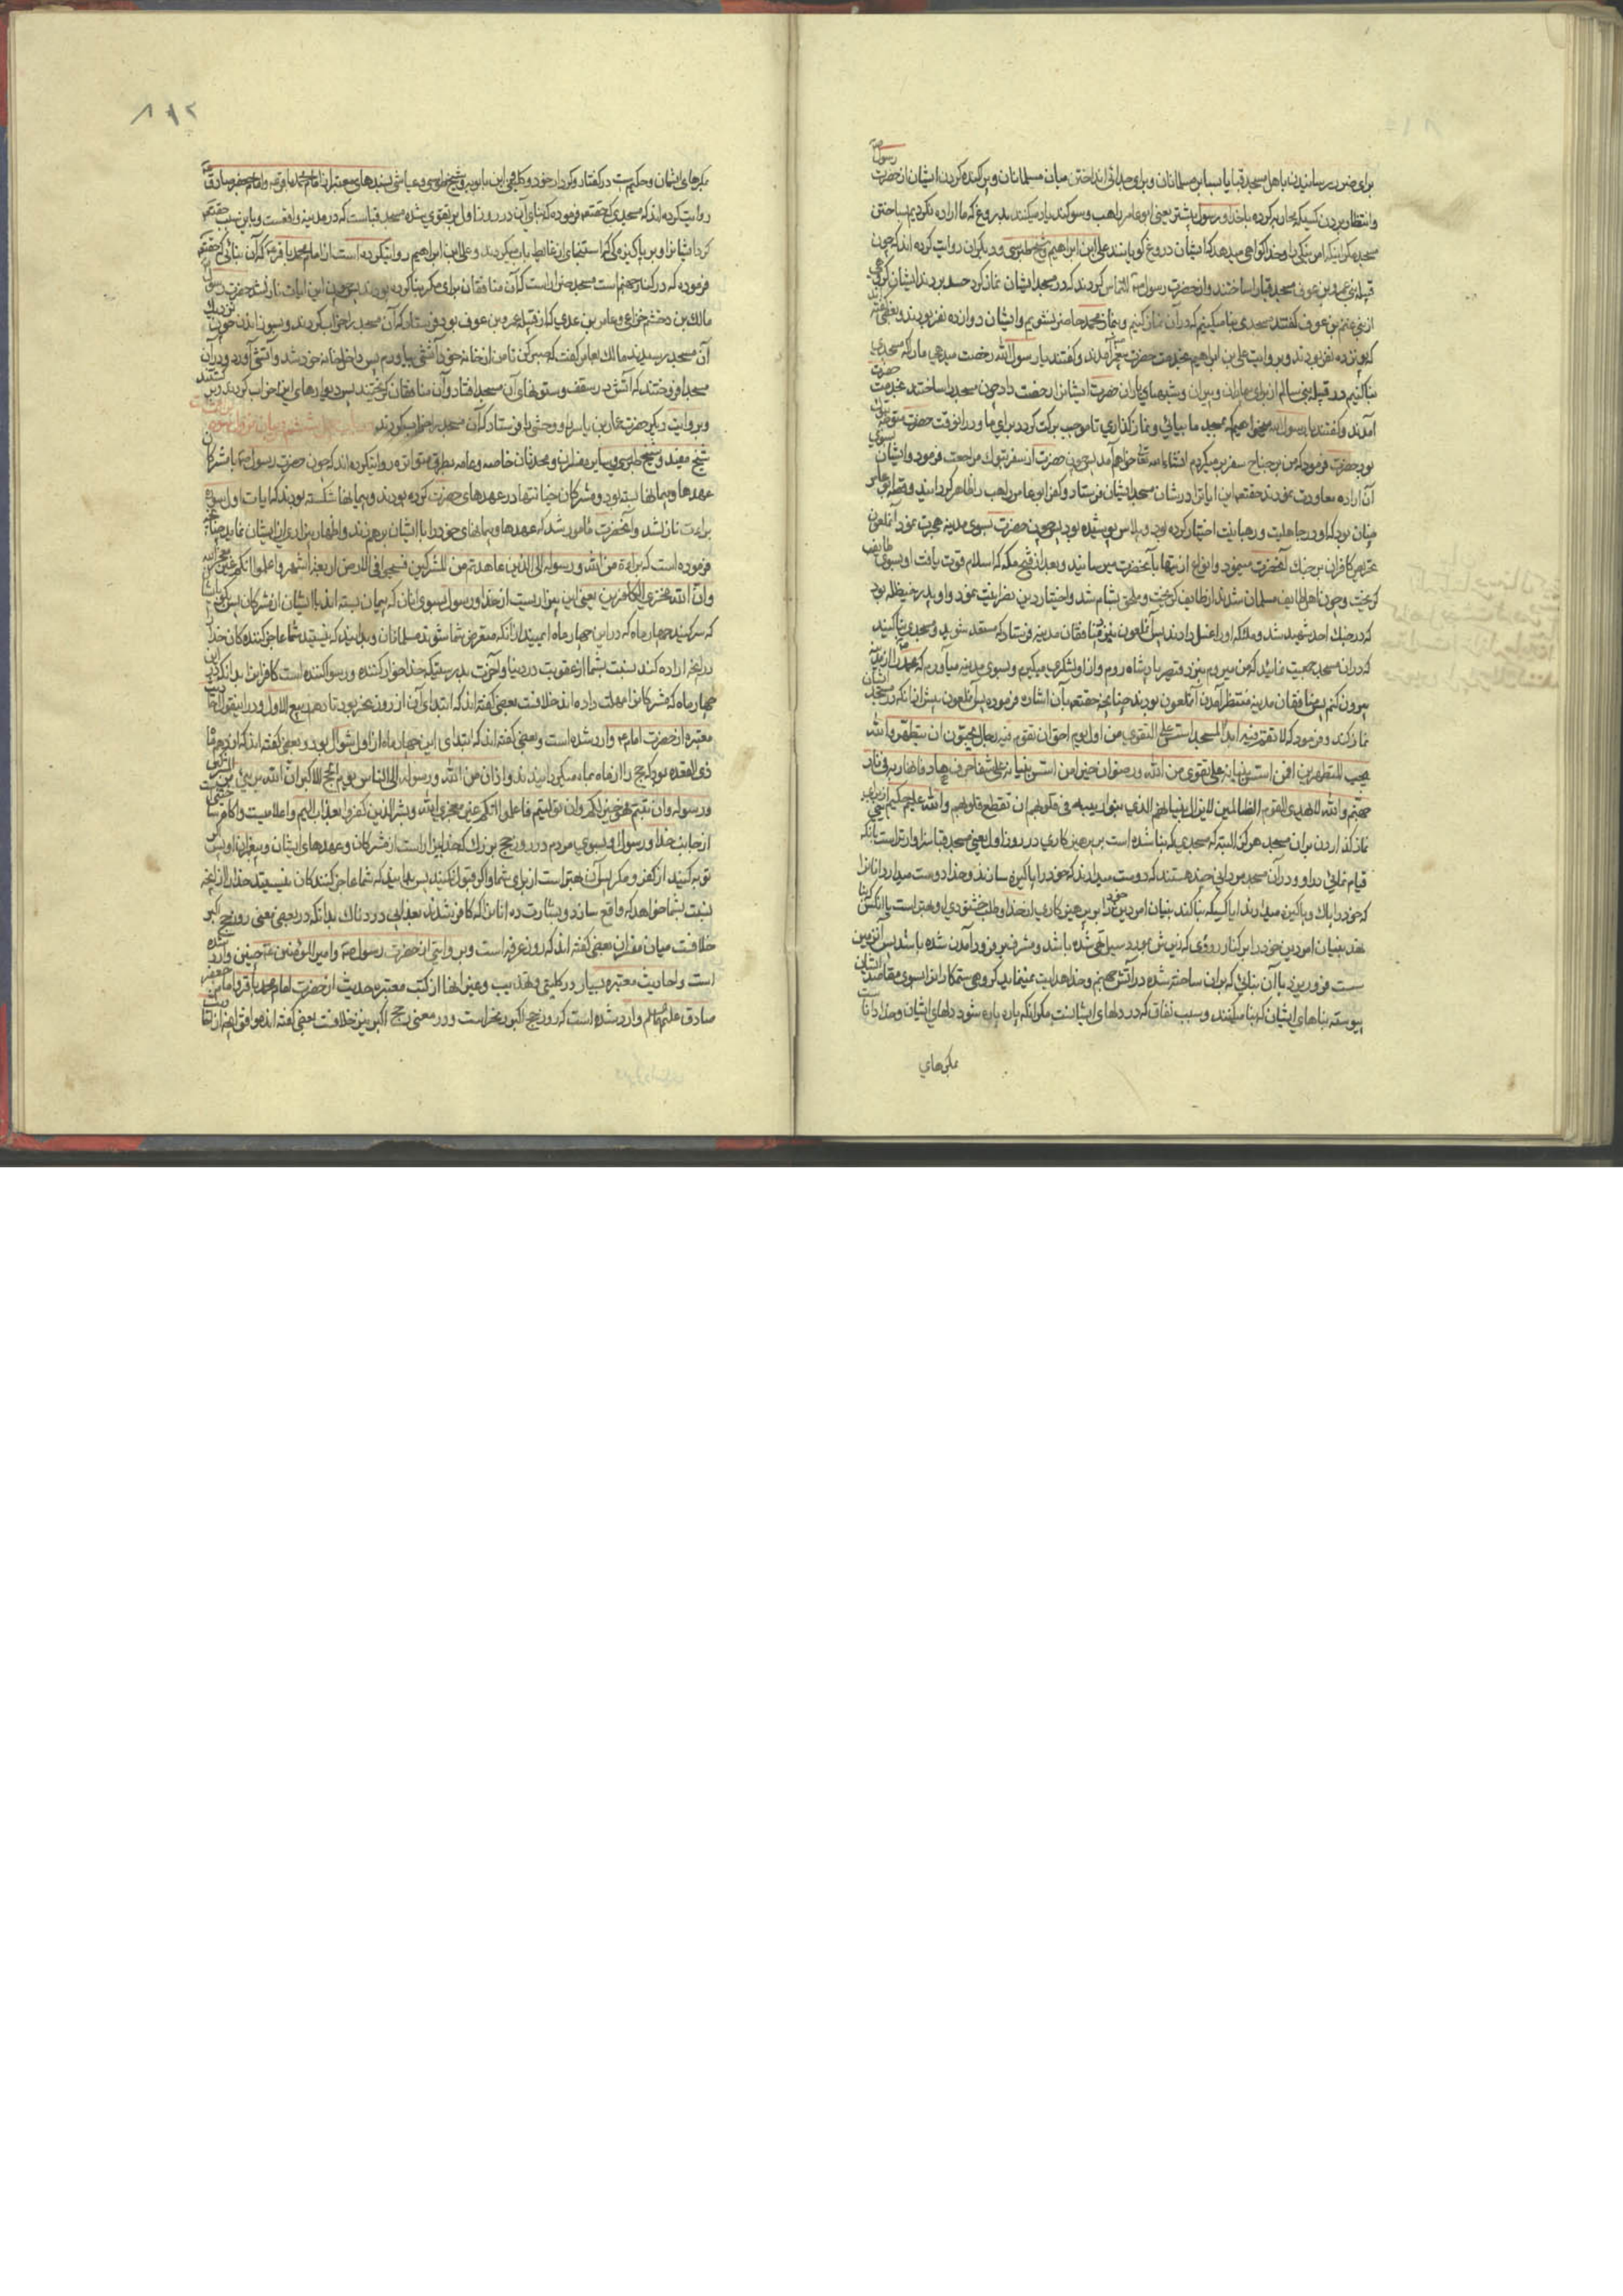 برای ضرر رسانیدن باهل مسجد قبا یا بسایر مسلمانان و برای جدائی انداختن میان مسلمانان و پراکنده کردن ایشان از حضرت رسول ص
و انتظار بردن کسیکه محاربه کرده با خدا و رسول پیشتر یعنی ابو عامر راهب و سوکند یاد میکنند بدروغ که ما اراده نکردیم بساختن
مسجد مکر نیکی را و خدا کواهی میدهد که ایشان دروغ کویانند علی ابن ابراهیم و شیخ طبرسی و دیکران روایت کرده اند که چون
قبیله بنی عمرو بن عوف مسجد قبا را ساختند و از حضرت رسول ص التماس کردند که در مسجد ایشان نماز کرد حسد بردند ایشان کروهی
از بنی غنم بن عوف کفتند مسجدی بنا میکنیم که در آن نماز کنیم و بنماز محمد حاضر نشویم و ایشان دوازده نفر بودند و بعضی کفته اند
که پانزده نفر بودند و بروایت علی بن ابراهیم بخدمت حضرت پیغمبر آمدند و کفتند یا رسول الله رخصت میدهی ما را که مسجدی
بنا کنیم در قبیله بنی سالم از برای بیماران و پیران و شبهای باران حضرت ایشانرا رخصت داد چون مسجد را ساختند بخدمت حضرت
آمدند و کفتند یا رسول الله میخواهیم که بمسجد ما بیائی و نماز کذاری تا موجب برکت کردد برای ما و در انوقت حضرت متوجه تبوک
بود حضرت فرمود که من بر جناح سفرم میکردم انشاء الله تعالی خواهم آمد پس چون حضرت از سفر تبوک مراجعت فرمود و ایشان
آن اراده معاودت نمودند حقتعالی این ایاترا در شان مسجد ایشان فرستاد و کفر ابو عامر راهب را ظاهر کردانید و قصه ابو عامر
چنان بود که او در جاهلیت و رهبانیت اختیار کرده بود و پلاس پوشیده بود پس چون حضرت بسوی مدینه هجرت نمود آنملعون
تحریص کافران بر جنک آنحضرت مینمود و انواع از یتها بآنحضرت میرسانید و بعد از فتح مکه که اسلام قوت یافت او بسوی طایف
کریخت و چون اهل طایف مسلمان شدند از طایف کریخت و ملحق بشام شد و اختیار دین نصرانیت نمود و او پدر حنظله بود
که در جنک احد شهید شد و ملائکه او را غسل دادند پس آنملعون بنزد منافقان مدینه فرستاد که مستعد شوید و مسجدی بنا کنید
که در ان مسجد جمعیت نمائید که من میروم بنزد قیصر پادشاه روم و از او لشکری میکیرم و بسوی مدینه میآورم که محمد را از مدینه
بیرون کنم پس منافقان مدینه منتظر آمدن آنملعون بودند چنانچه حقتعالی بآن اشاره فرموده پس آنملعون پیش از آنکه
نماز کند و فرمود که لا تقم فیه ابدا لمسجد اسس علی التقوی من اول یوم احق ان تقوم فیه رجال یحبون ان یتطهروا والله
یحب المتطهرین افمن اسس بنیانه علی تقوی من الله و رضوان خیر امن اسس بنیانه علی شفا جرف هار فانهار به فی نار
جهنم والله لا یهدی القوم الظالمین لا یزال بنیانهم الذی بنوا ریبة فی قلوبهم الا ان تقطع قلوبهم والله علیم حکیم
نماز کذاردن در ان مسجد هرکز البته که مسجدی که بنا شده است بر پرهیزکاری در روز اول یعنی مسجد قبا سزاوارتر است بانکه
قیام نمائی در او و در آن مسجد مردانی چند هستند که دوست میدارند که خود را پاکیزه سازند و خدا دوست میدارد انانرا
که خود را پاک و پاکیزه میدارند ایا کسیکه بنا کند بنیان امور دین خود را بر پرهیزکاری از خدا و طلب خشنودی او بهتر است یا آنکس که
نهد بنیان امور دین خود را بر کنار رودی که زیرش بمرور سیل تهی شده باشد و مشرف بر فرود آمدن شده باشد پس آن زمین
سست فرو ریزد با آن بنائی که بر ان ساخته شده در آتش جهنم و خدا هدایت نمینماید کروهی ستمکاران را بسوی مقاصد ایشان
پیوسته بناهای ایشان که بنا میکنند و سبب نفاق که در دلهای ایشانست مکر آنکه پاره پاره شود دلهای ایشان و خدا دانا است
بمکرهای
۸۱۲
بمکرهای ایشان و حکیم است در کفتار و کردار خود و کلینی و ابن بابویه و شیخ طوسی و عیاشی بسندهای معتبر از امام محمد باقر ع و امام جعفر صادق ع
روایت کرده اند که مسجدی که حقتعالی فرموده که بنای آن در روز اول بر تقوی شده مسجد قباست که در مدینه واقعست و باین سبب حقتعالی
کرد ایشانرا بر پاکیزه کی که استنجای از غایط بآب میکردند و علی بن ابراهیم روایتکرده است از امام محمد باقر ع که آن بنائی که حقتعالی
فرموده که در کنار جهنم است مسجد ضرار است که آن منافقان برای مکر بنا کرده بودند پس چون این ایات نازل شد حضرت رسول
مالک بن دخشم خزاعی و عامر بن عدی که از قبیله عمرو بن عوف بود فرستاد که آن مسجد را خراب کردند و بسوزانند چون نزدیک
آن مسجد رسیدند مالک بعامر کفت که صبر کن تا من از خانه خود آتشی بیاورم پس داخل خانه خود شد و آتشی آورد و در آن
مسجد افروختند که آتش در سقف و ستونهای آن مسجد افتاد و آن منافقان کریختند پس دیوارهای انرا خراب کردند و بر کشتند
و بروایت دیکر حضرت عمار بن یاسر را و وحشی را فرستاد که آن مسجد را خراب کردند باب چهل و ششم در بیان نزول سوره برائت
شیخ مفید و شیخ طبرسی و سایر مفسران و محدثان خاصه و عامه بطرق متواتره روایتکرده اند که چون حضرت رسول ص با مشرکان
عهدها و پیمانها بسته بود و مشرکان خیانتها در عهدهای حضرت کرده بودند و پیمانها شکسته بودند که ایات اول سوره
براءت نازل شد و آنحضرت مامور شد که عهدها و پیمانهای خود را با ایشان برهم زند و اظهار بیزاری از ایشان نماید چنانچه
فرموده است که براءة من الله و رسوله الی الذین عاهدتم من المشرکین فسیحوا فی الارض اربعة اشهر و اعلموا انکم غیر معجزی الله
و ان الله مخزی الکافرین یعنی این بیزاریست از خدا و رسول بسوی انان که پیمان بسته اند با ایشان از مشرکان پس بکو بایشان
که سیر کنید چهار ماه که در این چهار ماه ایمنید از آنکه متعرض شما شوند مسلمانان و بدانید که نیستید شما عاجز کننده کان خدا را
در انچه اراده کند نسبت بشما از عقوبت در دنیا و آخرت بدرستیکه خدا خوار کننده و رسوا کننده است کافرانرا بدانکه در این
چهار ماه که مشرکانرا مهلت داده اند خلافست بعضی کفته اند که ابتدای آن از روز نحر بود تا دهم ربیع الاول و در اینقول احادیث
معتبره از حضرت امام ع وارد شده است و بعضی کفته اند که ابتدای این چهار ماه از اول شوال بود و بعضی کفته اند که از دهم ماه
ذی القعده بود که حج را از ماه بماه میکردانیدند و اذان من الله و رسوله الی الناس یوم الحج الاکبر ان الله بری من المشرکین
و رسوله وان تبتم فهو خیر لکم وان تولیتم فاعلموا انکم غیر معجزی الله و بشر الذین کفروا بعذاب الیم و اعلامیست
از جانب خدا و رسول او بسوی مردم در روز حج بزرک که خدا بیزار است از مشرکان و عهدهای ایشان و پیغمبر او پس اکر
توبه کنید از کفر و مکر پس آن بهتر است از برای شما و اکر قبول نکنید پس بدانید که شما عاجز کنندکان نیستید خدا را از انچه
نسبت بشما خواهد که واقع سازد و بشارت ده انانرا که کافر شدند بعذابی دردناک بدانکه در معنی روز حج اکبر
خلافست میان مفسران بعضی کفته اند که روز عرفه است و بروایتی از حضرت رسول ص و امیر المومنین ع چنین وارد شده
است و احادیث معتبره بسیار در کلینی و تهذیب و غیر انها از کتب معتبره حدیث از حضرت امام محمد باقر و امام جعفر
صادق علیهما السلام وارد شده است که روز حج اکبر روز نحر است و در معنی حج اکبر نیز خلافست بعضی کفته اند موافق